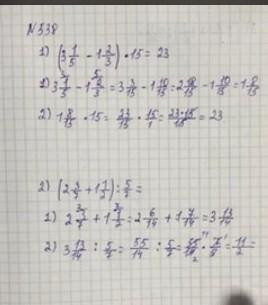 N 538
1) (3 1/5 - 1 2/3) · 15 = 23
1) 3 1/5 - 1 2/3 = 3 3/15 - 1 10/15 = 2 18/15 - 1 10/15 = 1 8/15
2) 1 8/15 · 15 = 23/15 · 15/1 = 23·15/15 = 23
2) (2 3/7 + 1 1/2) : 5/7 =
1) 2 3/7 + 1 1/2 = 2 6/14 + 1 7/14 = 3 13/14
2) 3 13/14 : 5/7 = 55/14 : 5/7 = 55/14 · 7/5 = 11/2 =